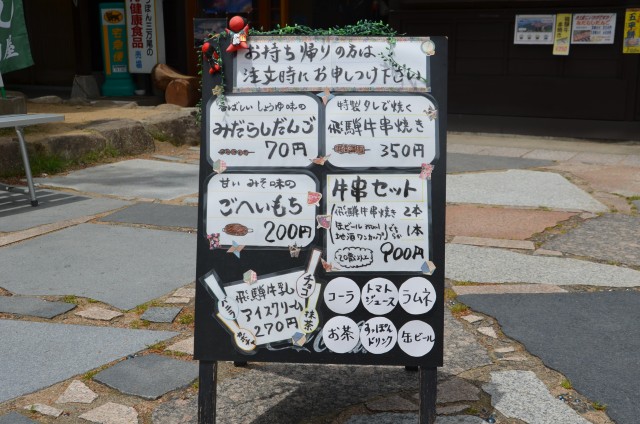 お持ち帰りの方は、
注文時にお申しつけ下さい
香ばしい しょうゆ味の
みだらしだんご
70円
特製タレで焼く
飛騨牛串焼き
350円
甘い みそ味の
ごへいもち
200円
牛串セット
飛騨牛串焼き 2本
缶ビール
地酒ワンカップ
どちらか
1本
900円
飛騨牛乳
アイスクリーム
270円
バニラ
チョコ
抹茶
コーラ
トマト
ジュース
ラムネ
お茶
すっぽん
ドリンク
缶ビール
健康食品